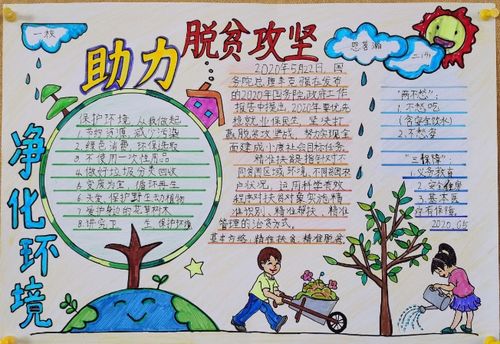 一校
助力
脱贫攻坚
恩茗瀚
三(4)
净化环境
保护环境 从我做起
1.节约资源 减少污染
2.绿色消费 环保选购
3.不使用一次性用品
4.做好垃圾分类回收
5.变废为宝 循环再生
6.关爱,保护野生动植物
7.爱护身边的花草树木
8.讲究卫生 保护环境
2020年5月22日,国
务院总理李克强在发布
的2020年国务院政府工作
报告中提出,2020年要优先
稳就业保民生 坚决打
赢脱贫攻坚战,努力实现全
面建成小康社会目标任务。
精准扶贫是指针对不
同贫困区域环境、不同贫困农
户状况,运用科学有效
程序对扶贫对象实施精
准识别、精准帮扶、精准
管理的治贫方式。
基本方略:精准扶贫、精准脱贫
“两不愁”:
1.不愁吃
(含安全饮水)
2.不愁穿
“三保障”:
1.义务教育
2.安全住房
3.基本医
疗有保障。
2020.05